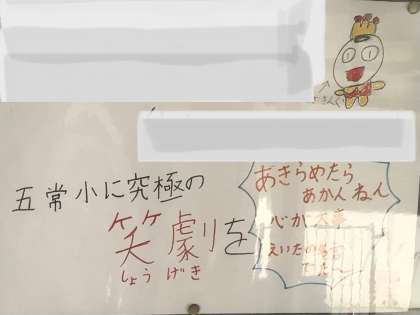 五常小に究極の
笑劇を
しょうげき
あきらめたら
あかんねん
心が大事